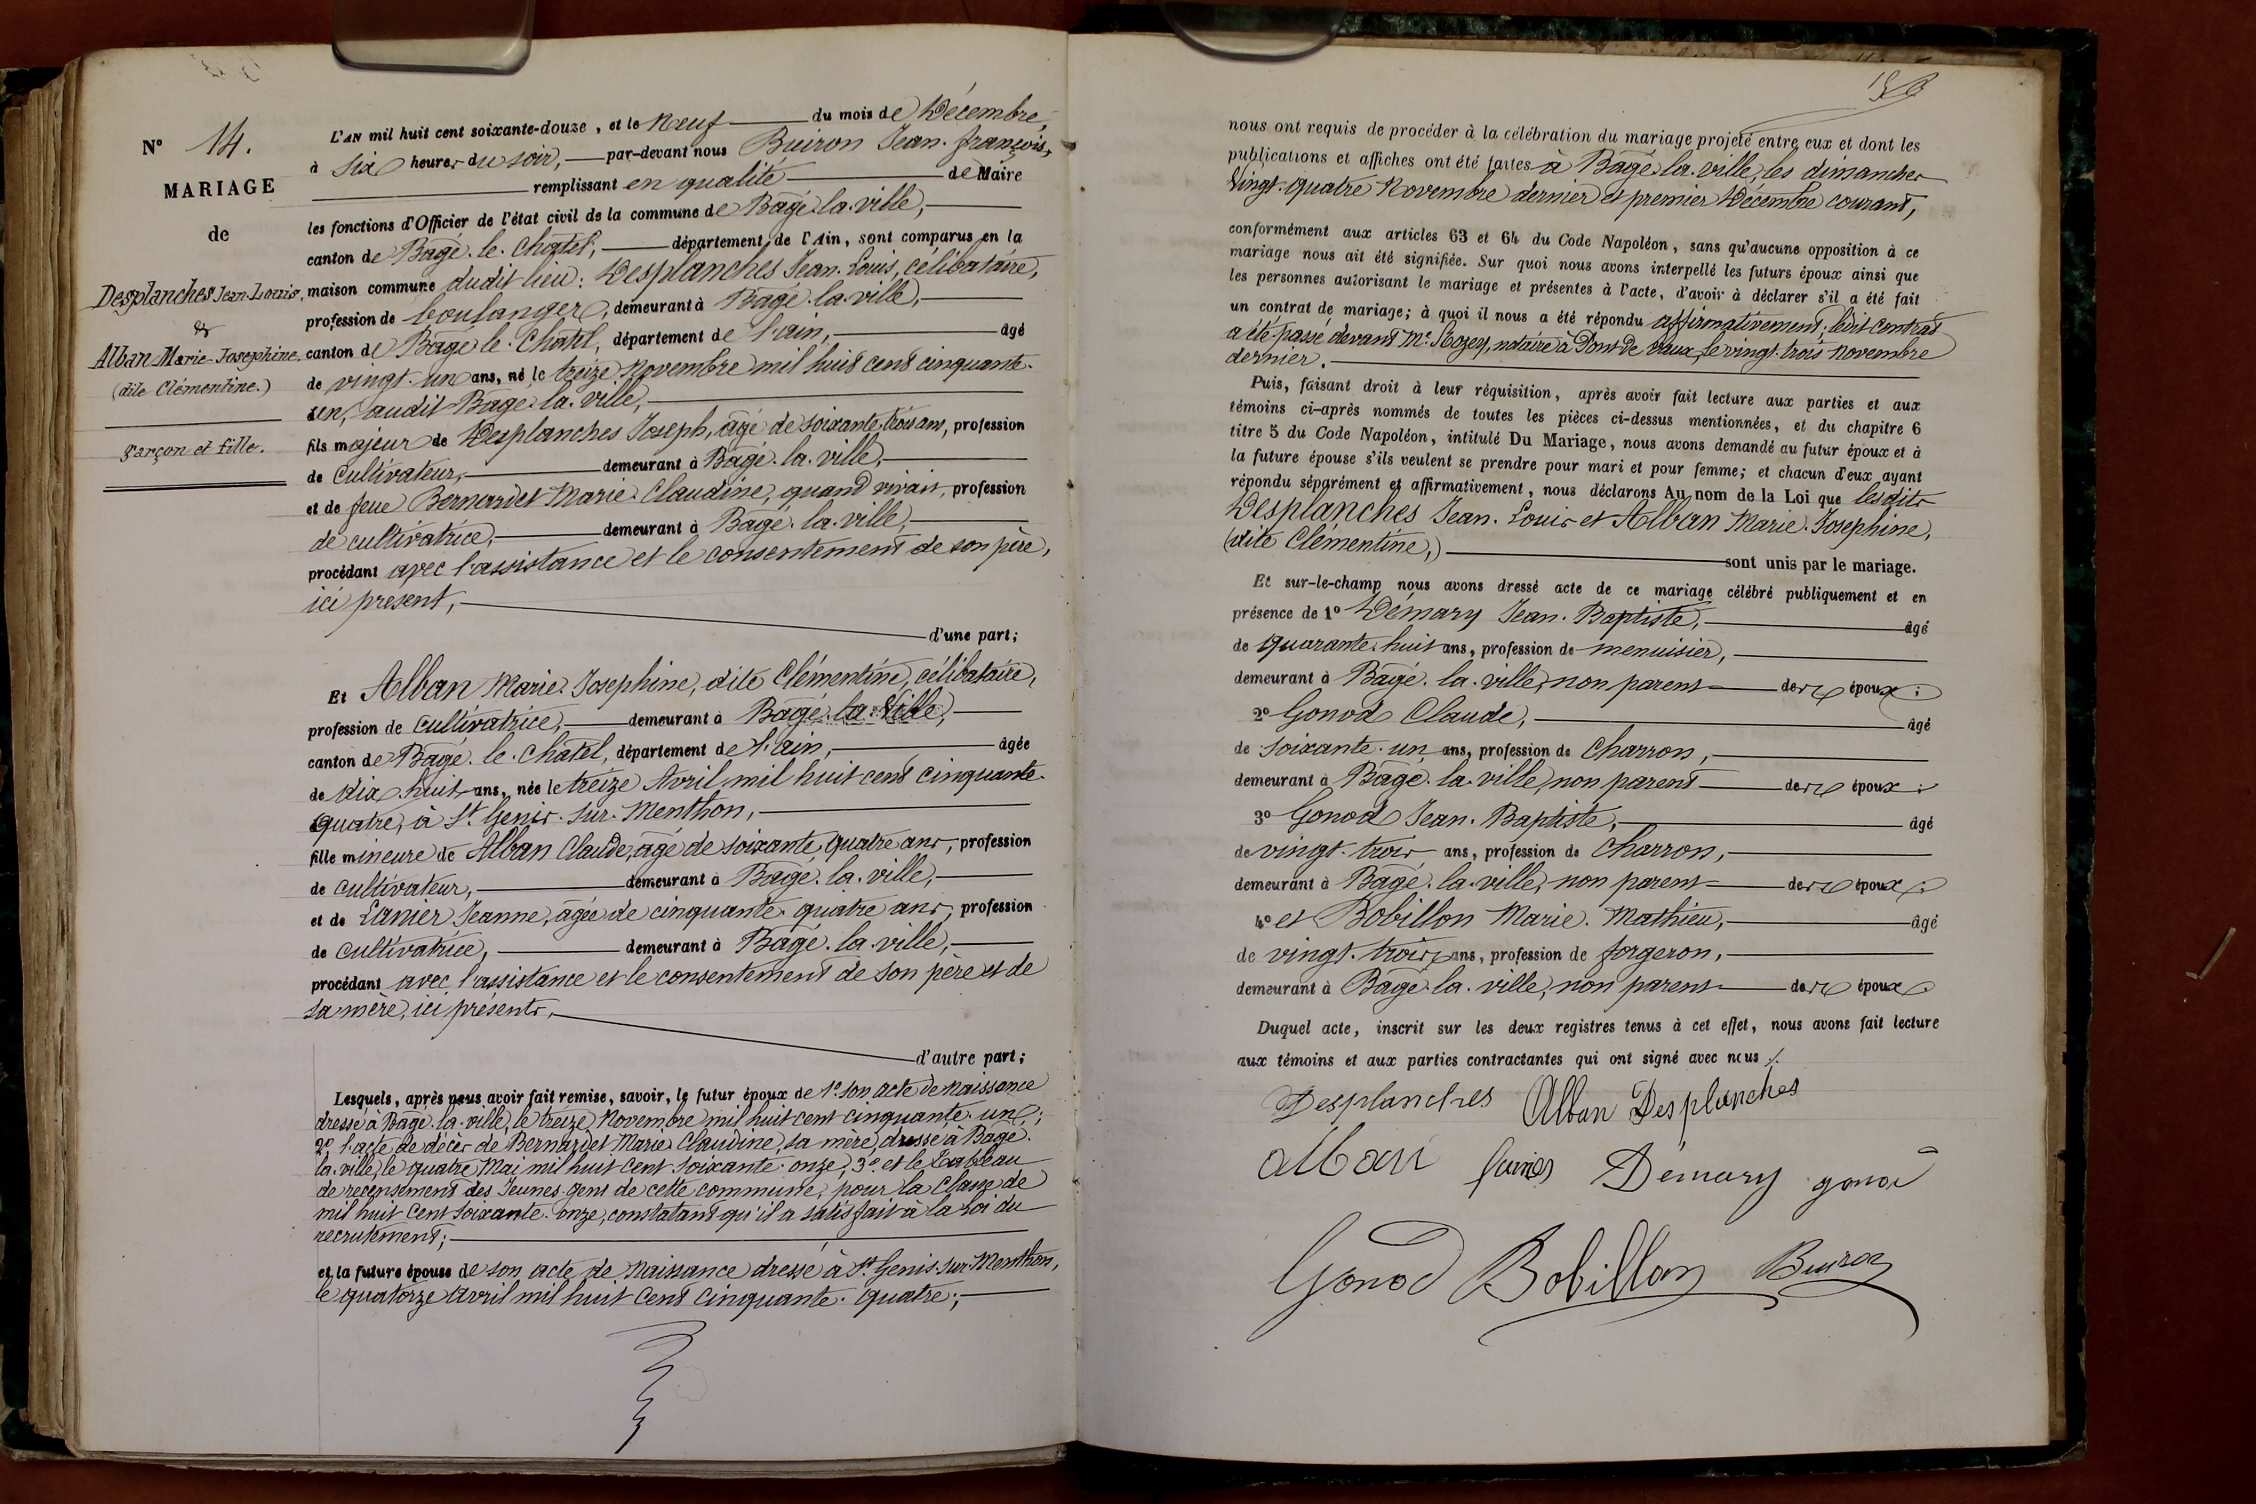 N° 14.
MARIAGE
de
Desplanches Jean-Louis,
&
Alban Marie-Josephine.
(dite Clémentine.)
garçon et fille.
L'AN mil huit cent soixante-douze, et le Neuf du mois de Décembre,
à Six heures du soir, par-devant nous Buiron Jean-François,
remplissant en qualité de Maire
les fonctions d'Officier de l'état civil de la commune de Bagé-la-ville,
canton de Bagé-le-Chatel, département de l'Ain, sont comparus en la
maison commune dudit lieu: Desplanches Jean-Louis, célibataire,
profession de boulanger, demeurant à Bagé-la-ville,
canton de Bagé le-Chatel, département de l'ain, âgé
de vingt-un ans, né le treize Novembre mil huit cent cinquante-
un, audit Bagé-la-ville,
fils majeur de Desplanches Joseph, âgé de soixante-trois ans, profession
de Cultivateur, demeurant à Bagé-la-ville,
et de feue Bernardet Marie-Claudine, quand vivait, profession
de cultivatrice, demeurant à Bagé-la-ville,
procédant avec l'assistance et le consentement de son père,
ici présent,
d'une part;
Et Alban Marie-Josephine, dite Clémentine, célibataire,
profession de cultivatrice, demeurant à Bagé-la-Ville,
canton de Bagé-le-Chatel, département de l'ain, âgée
de dix-huit ans, née le treize Avril mil huit cent cinquante-
quatre, à St Genis-sur-Menthon,
fille mineure de Alban Claude, âgé de soixante-quatre ans, profession
de cultivateur, demeurant à Bagé-la-ville,
et de Lanier Jeanne, âgée de cinquante-quatre ans, profession
de cultivatrice, demeurant à Bagé-la-ville,
procédant avec l'assistance et le consentement de son père et de
sa mère, ici présents,
d'autre part;
Lesquels, après nous avoir fait remise, savoir, le futur époux de 1° son acte de Naissance
dressé à Bagé-la-ville, le treize Novembre mil huit cent cinquante-un;
2° l'acte de décès de Bernardet Marie Claudine, sa mère, dressé à Bagé-
la-ville, le quatre Mai mil huit cent soixante-onze, 3° et le Tableau
de recensement des Jeunes-gens de cette commune, pour la Classe de
mil huit cent soixante-onze, constatant qu'il a satisfait à la Loi du
recrutement;
et la future épouse de son acte de Naissance dressé à St Genis-sur-Menthon,
le quatorze Avril mil huit cent cinquante-quatre;
nous ont requis de procéder à la célébration du mariage projeté entre eux et dont les
publications et affiches ont été faites à Bagé-la-ville, les dimanches
Vingt-quatre Novembre dernier et premier Décembre courant,
conformément aux articles 63 et 64 du Code Napoléon, sans qu'aucune opposition à ce
mariage nous ait été signifiée. Sur quoi nous avons interpellé les futurs époux ainsi que
les personnes autorisant le mariage et présentes à l'acte, d'avoir à déclarer s'il a été fait
un contrat de mariage; à quoi il nous a été répondu affirmativement; ledit Contrat
a été passé devant Me Rozey, notaire à Pont-de Vaux, le vingt-trois novembre
dernier.
Puis, faisant droit à leur réquisition, après avoir fait lecture aux parties et aux
témoins ci-après nommés de toutes les pièces ci-dessus mentionnées, et du chapitre 6
titre 5 du Code Napoléon, intitulé Du Mariage, nous avons demandé au futur époux et à
la future épouse s'ils veulent se prendre pour mari et pour femme; et chacun d'eux ayant
répondu séparément et affirmativement, nous déclarons Au nom de la Loi que lesdits
Desplanches Jean-Louis et Alban Marie-Josephine,
(dite Clémentine,) sont unis par le mariage.
Et sur-le-champ nous avons dressé acte de ce mariage célébré publiquement et en
présence de 1° Démary Jean-Baptiste, âgé
de quarante-huit ans, profession de menuisier,
demeurant à Bagé-la-ville, non parent des époux;
2° Gonod Claude, âgé
de Soixante-un ans, profession de Charron,
demeurant à Bagé-la-ville, non parent des époux;
3° Gonod Jean-Baptiste, âgé
de vingt-trois ans, profession de Charron,
demeurant à Bagé-la-ville, non parent des époux;
4° et Bobillon Marie-Mathieu, âgé
de vingt-trois ans, profession de forgeron,
demeurant à Bagé-la-ville, non parent des époux
Duquel acte, inscrit sur les deux registres tenus à cet effet, nous avons fait lecture
aux témoins et aux parties contractantes qui ont signé avec nous
Desplanches Alban Desplanches
alban Démary gonod
Gonod Bobillon Buiron